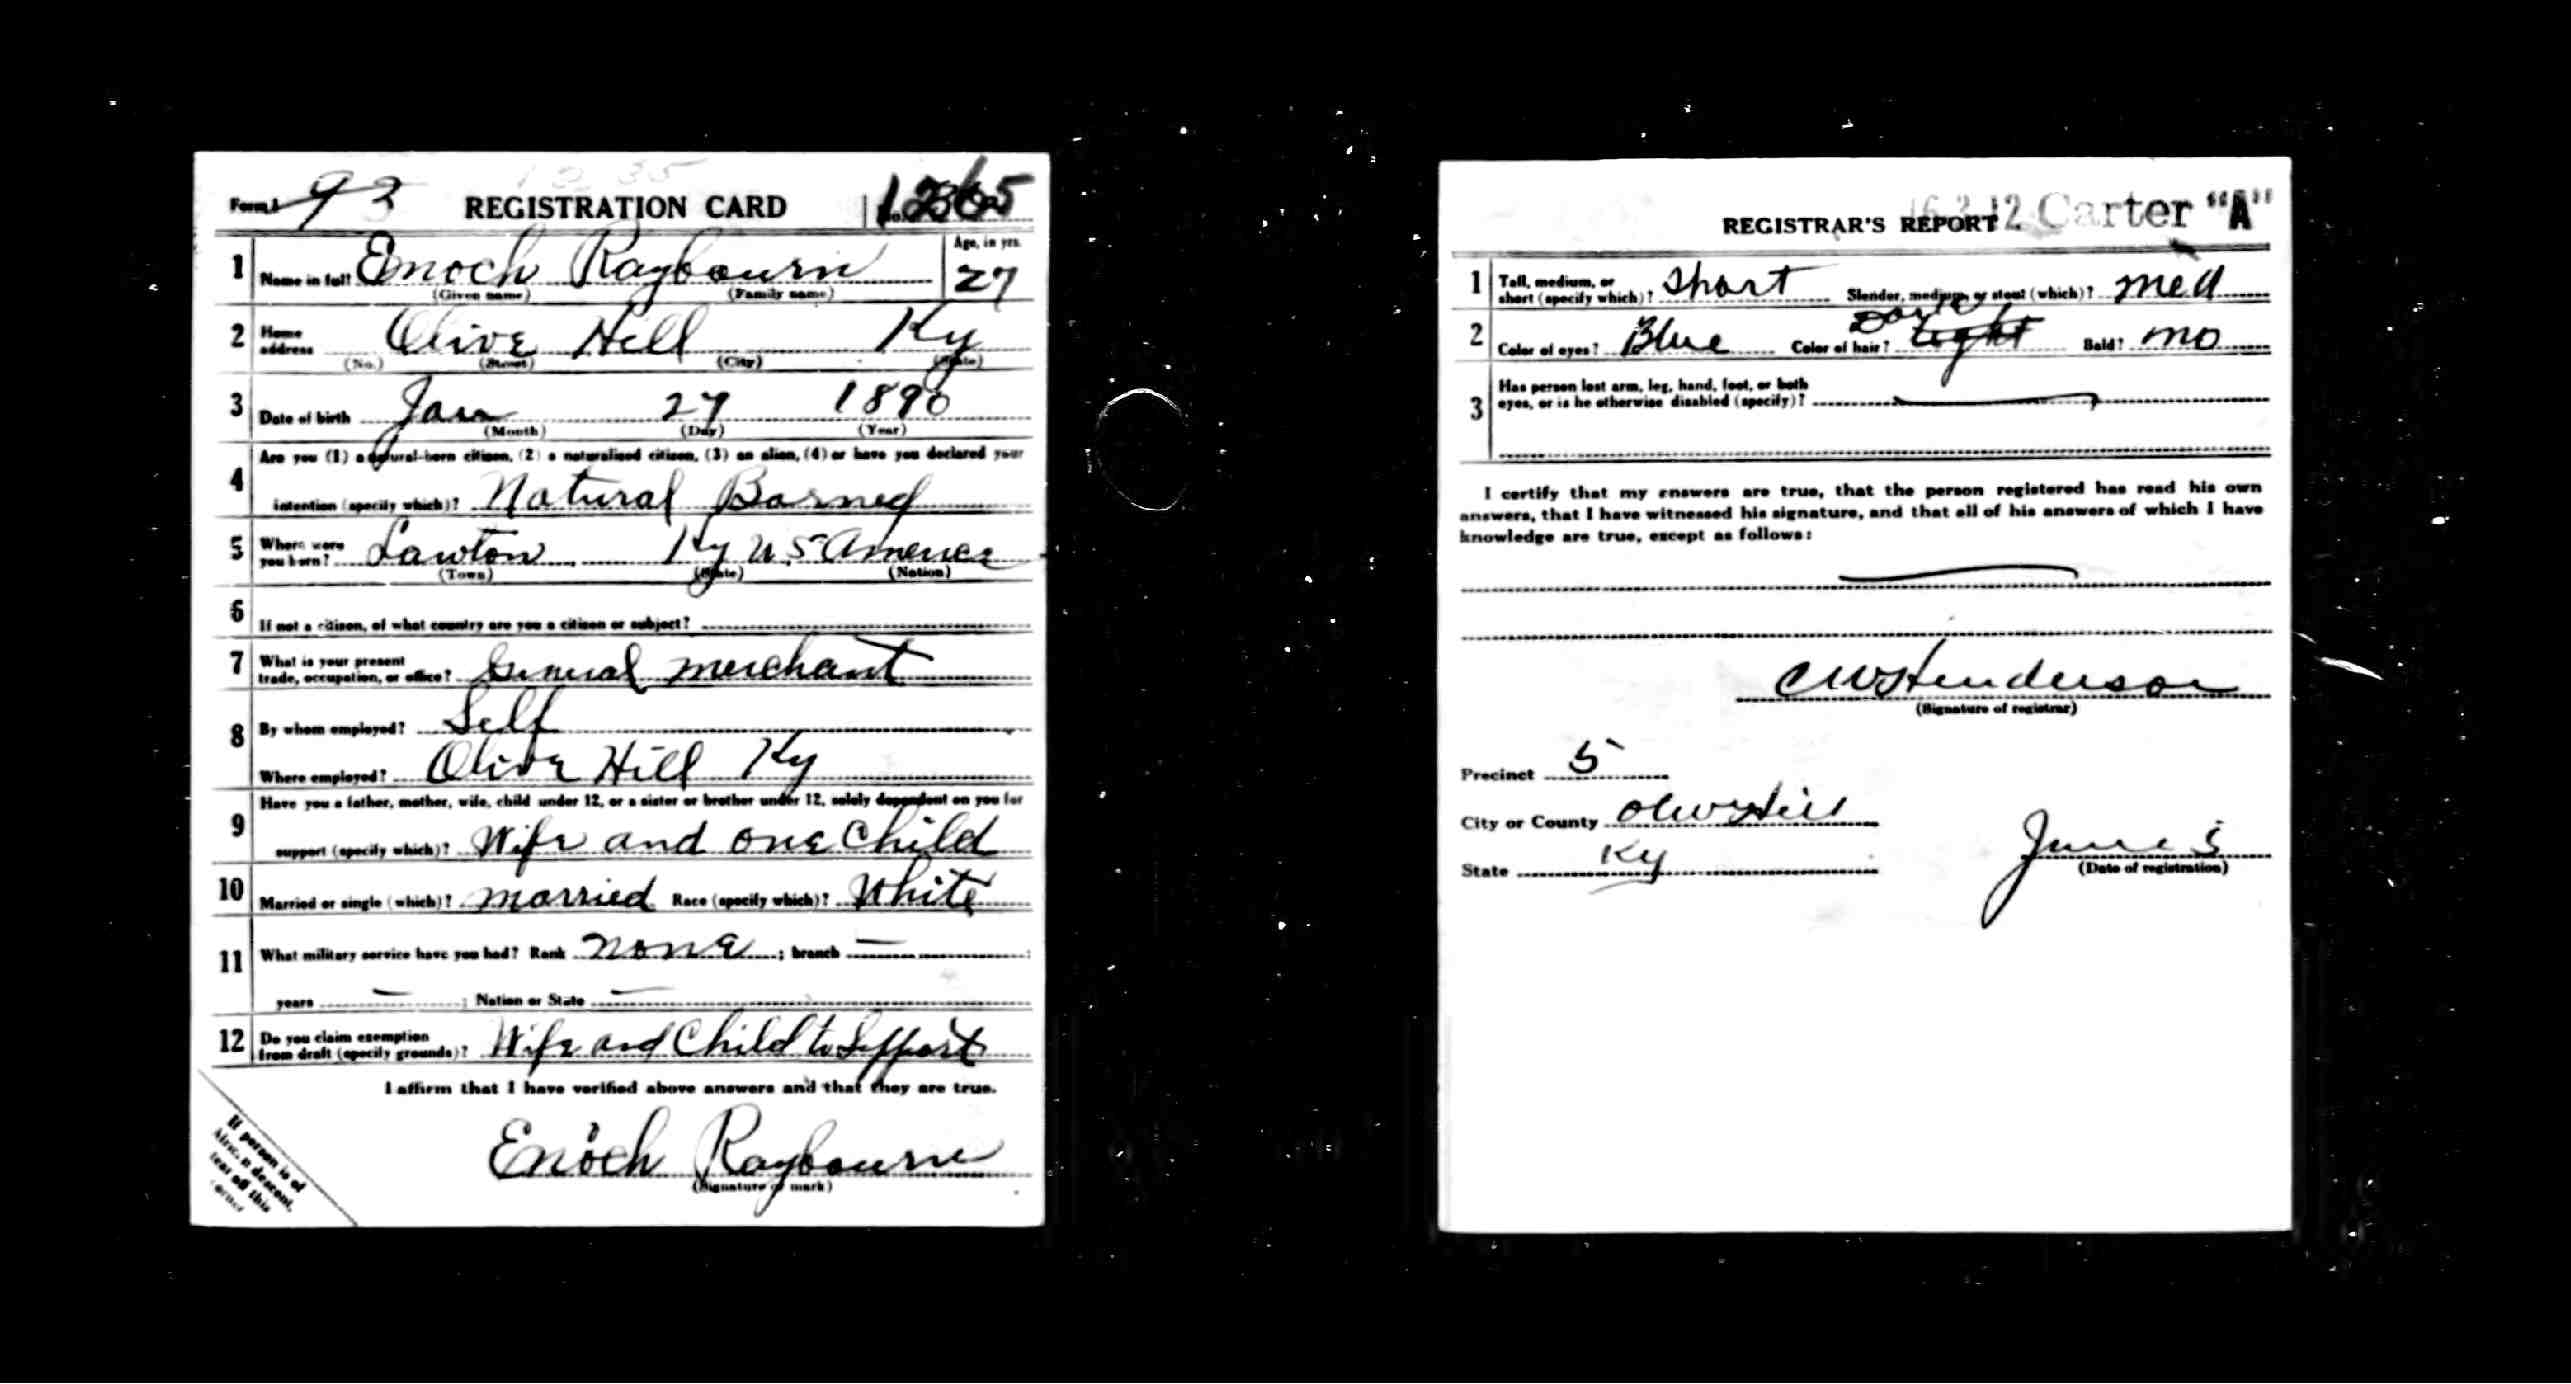 Form 1 93 REGISTRATION CARD No. 1265
1 Name in full Enoch Raybourn Age, in yrs.
(Given name) (Family name) 27
2 Home address Olive Hill Ky
(No.) (Street) (City) (State)
3 Date of birth Jan 27 1890
(Month) (Day) (Year)
4 Are you (1) a natural-born citizen, (2) a naturalized citizen, (3) an alien, (4) or have you declared your
intention (specify which)? Natural Borned
5 Where were you born? Lawton Ky U.S. America
(Town) (State) (Nation)
6 If not a citizen, of what country are you a citizen or subject?
7 What is your present
trade, occupation, or office? General merchant
8 By whom employed? Self
Where employed? Olive Hill Ky
9 Have you a father, mother, wife, child under 12, or a sister or brother under 12, solely dependent on you for
support (specify which)? Wife and one Child
10 Married or single (which)? married Race (specify which)? White
11 What military service have you had? Rank none ; branch —
years — ; Nation or State —
12 Do you claim exemption
from draft (specify grounds)? Wife and Child to Support
I affirm that I have verified above answers and that they are true.
Enoch Raybourn
(Signature or mark)
If person is of
African descent,
tear off this
corner
REGISTRAR'S REPORT 16-3-12 Carter "A"
1 Tall, medium, or
short (specify which)? Short Slender, medium, or stout (which)? med
Dark
2 Color of eyes? Blue Color of hair? Light Bald? no
3 Has person lost arm, leg, hand, foot, or both
eyes, or is he otherwise disabled (specify)?
I certify that my answers are true, that the person registered has read his own
answers, that I have witnessed his signature, and that all of his answers of which I have
knowledge are true, except as follows:
CW Henderson
(Signature of registrar)
Precinct 5
City or County Olive Hill
State Ky June 5
(Date of registration)